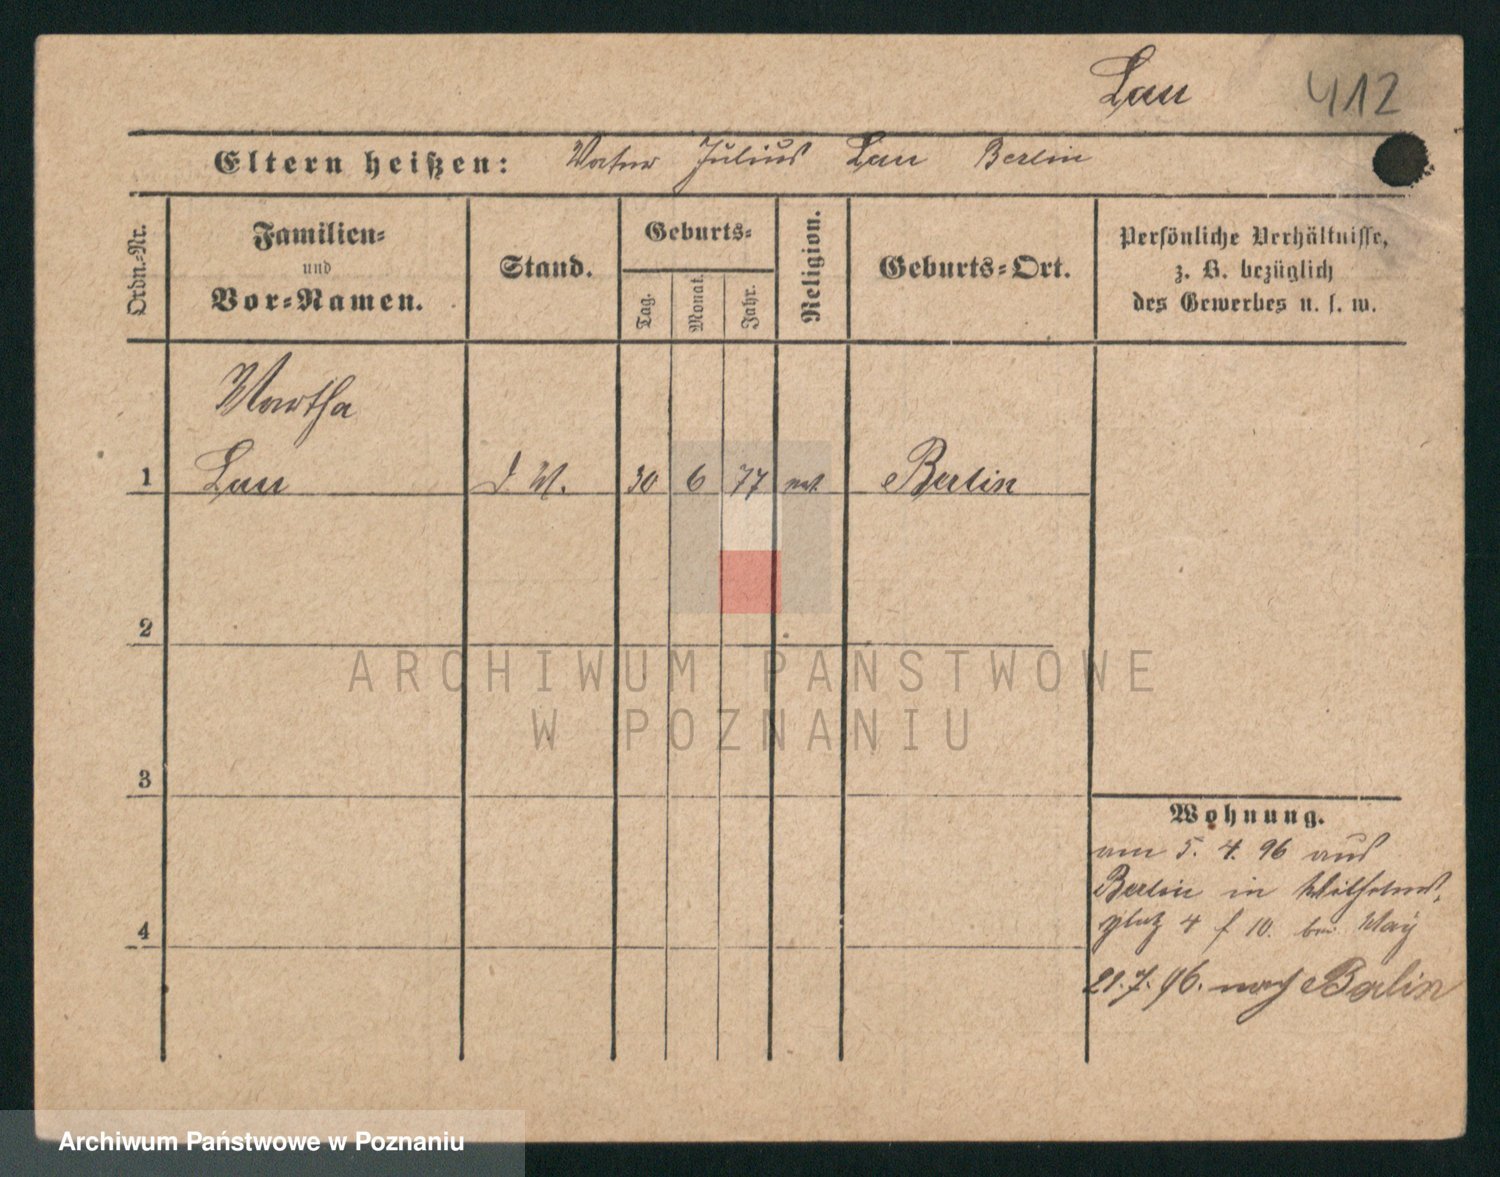 Lau 412
Eltern heißen: Vater Julius Lau Berlin
Ordn.-Nr.
Familien-
und
Vor-Namen.
Stand.
Geburts-
Tag.
Monat.
Jahr.
Religion.
Geburts-Ort.
Persönliche Verhältnisse,
z. B. bezüglich
des Gewerbes u. s. w.
Martha
1 Lau 30 6 77 Berlin
2
3
4
Wohnung.
am 5. 4. 96 aus
Berlin in Wilhelms-
platz 4 bei May
21.7.96. nach Berlin
ARCHIWUM PAŃSTWOWE
W POZNANIU
Archiwum Państwowe w Poznaniu